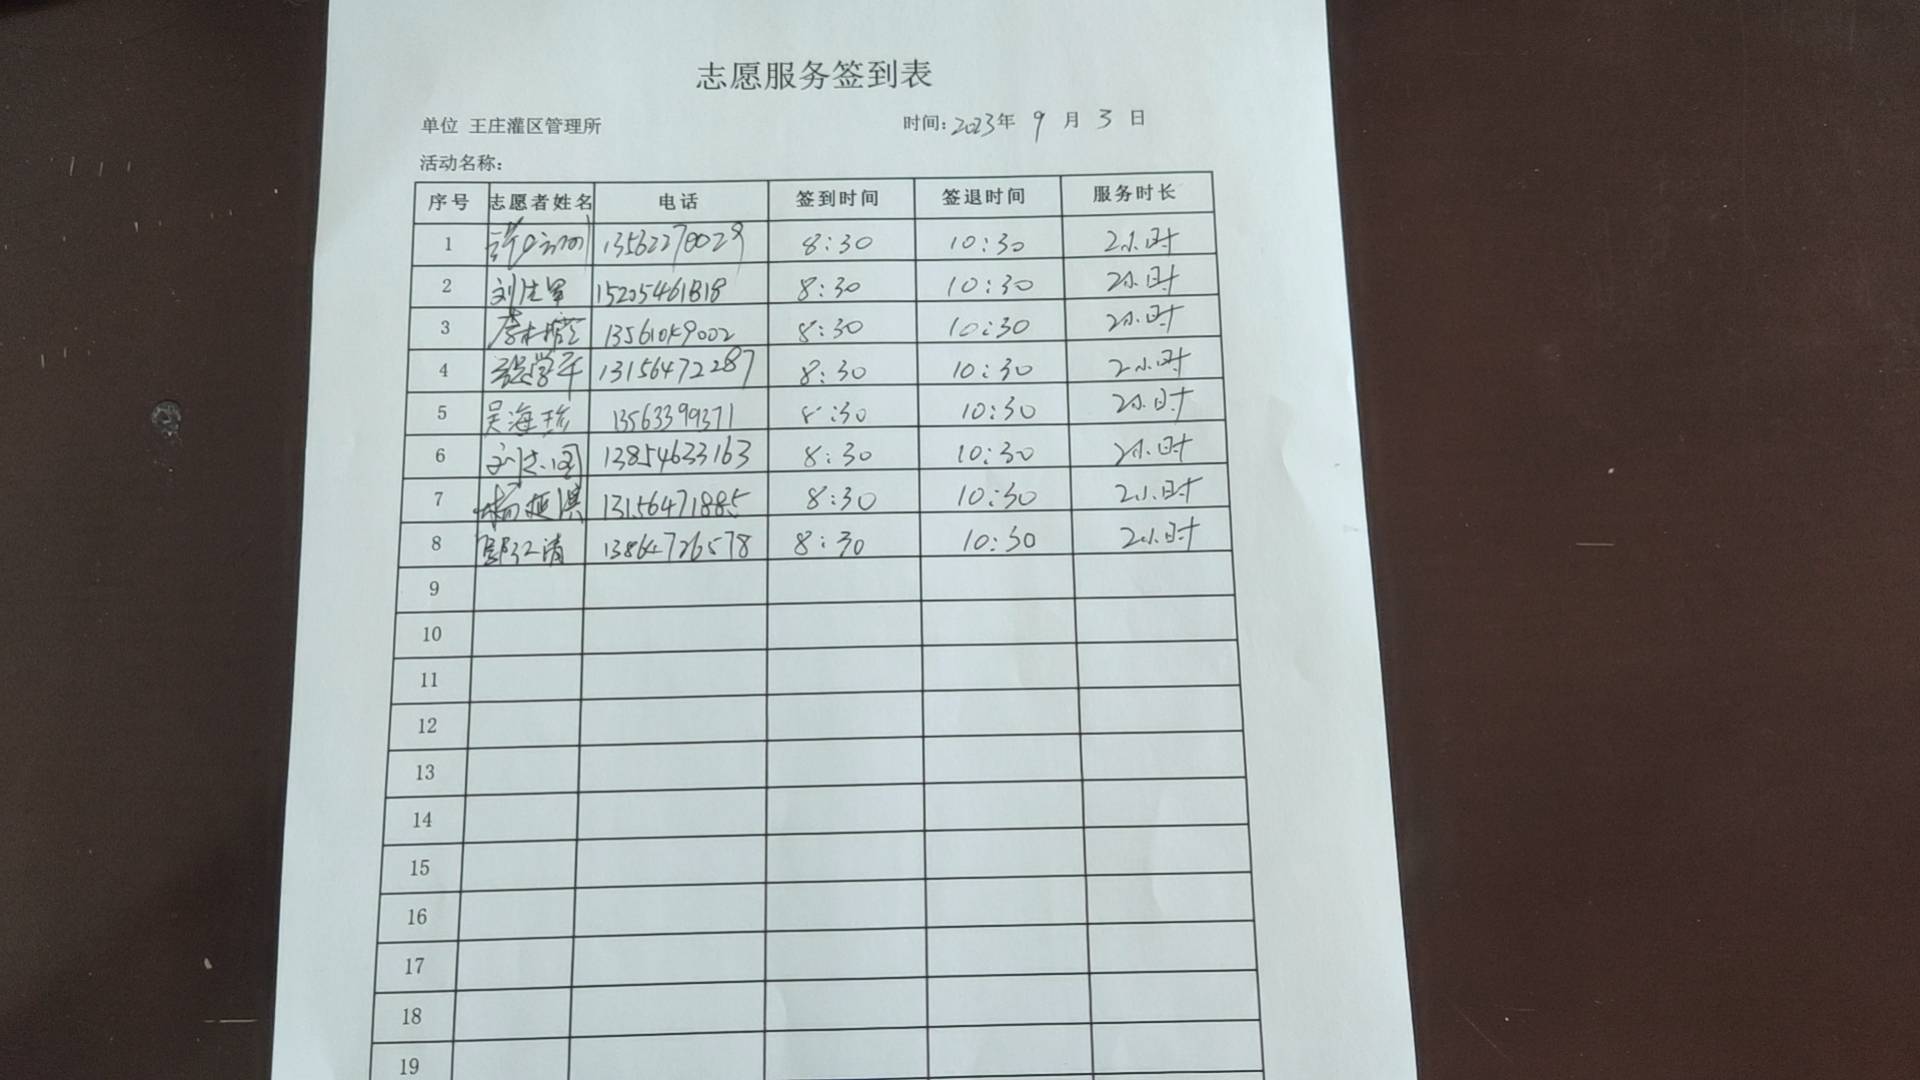 志愿服务签到表
单位 王庄灌区管理所 时间:2023年 9 月 3 日
活动名称:
序号 志愿者姓名 电话 签到时间 签退时间 服务时长
1 13562270029 8:30 10:30 2小时
2 刘生军 15205461818 8:30 10:30 2小时
3 13561049002 8:30 10:30 2小时
4 张学平 13156472287 8:30 10:30 2小时
5 吴海珍 13563399371 8:30 10:30 2小时
6 刘志国 13854633163 8:30 10:30 2小时
7 杨延滨 13156471885 8:30 10:30 2小时
8 郭江清 13864726578 8:30 10:30 2小时
9
10
11
12
13
14
15
16
17
18
19